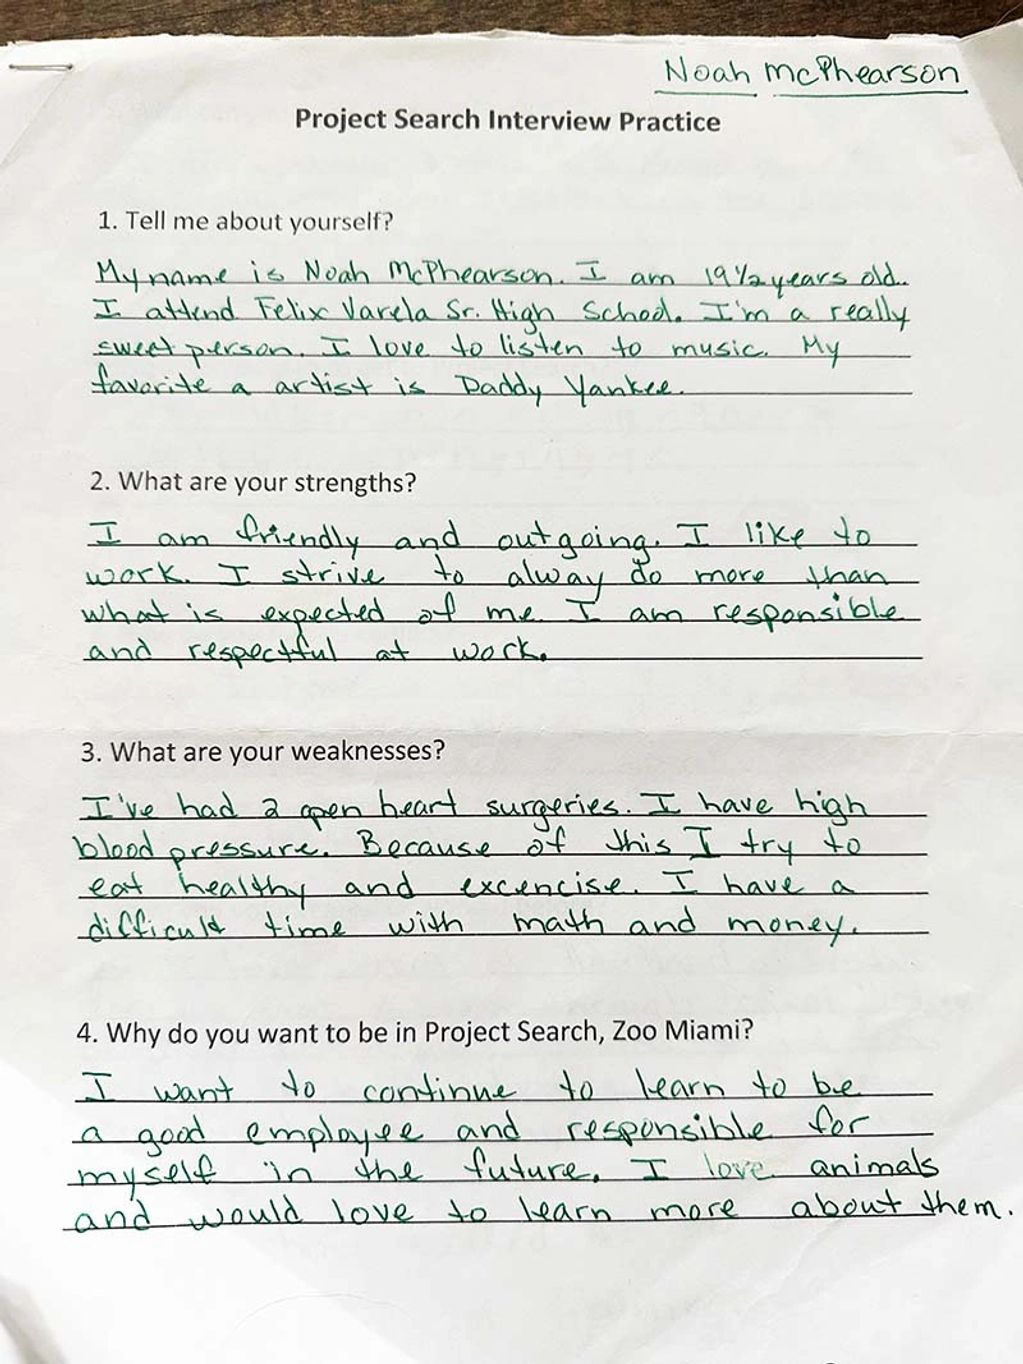 Noah McPhearson
Project Search Interview Practice
1. Tell me about yourself?
My name is Noah McPhearson. I am 19 1/2 years old.
I attend Felix Varela Sr. High School. I'm a really
sweet person. I love to listen to music. My
favorite a artist is Daddy Yankee.
2. What are your strengths?
I am friendly and outgoing. I like to
work. I strive to alway do more than
what is expected of me. I am responsible
and respectful at work.
3. What are your weaknesses?
I've had 2 open heart surgeries. I have high
blood pressure. Because of this I try to
eat healthy and excencise. I have a
difficult time with math and money.
4. Why do you want to be in Project Search, Zoo Miami?
I want to continue to learn to be
a good employee and responsible for
myself in the future. I love animals
and would love to learn more about them.